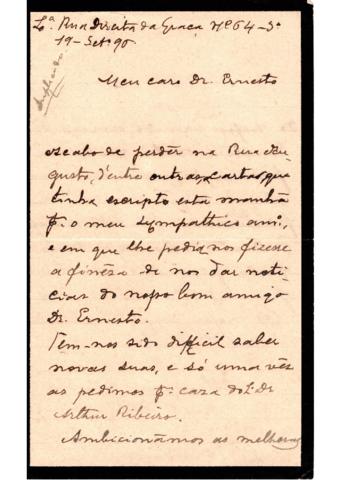 Lxª. Rua Direita da Graça Nº 64-3º
19-Setº 90
Meu caro Dr. Ernesto
Acabo de perder na Rua Au-
gusta, d'entre outras, cartas que
tinha escripto esta manhã
pª. o meu sympathico ami,
e em que lhe pedia nos fizesse
a finêsa de nos dar noti-
cias do nosso bom amigo
Dr. Ernesto.
Tem-nos sido difficil saber
novas suas, e só uma vês
as pedimos pª. caza do Dr
Arthur Ribeiro.
Ambicionâmos as melhoras